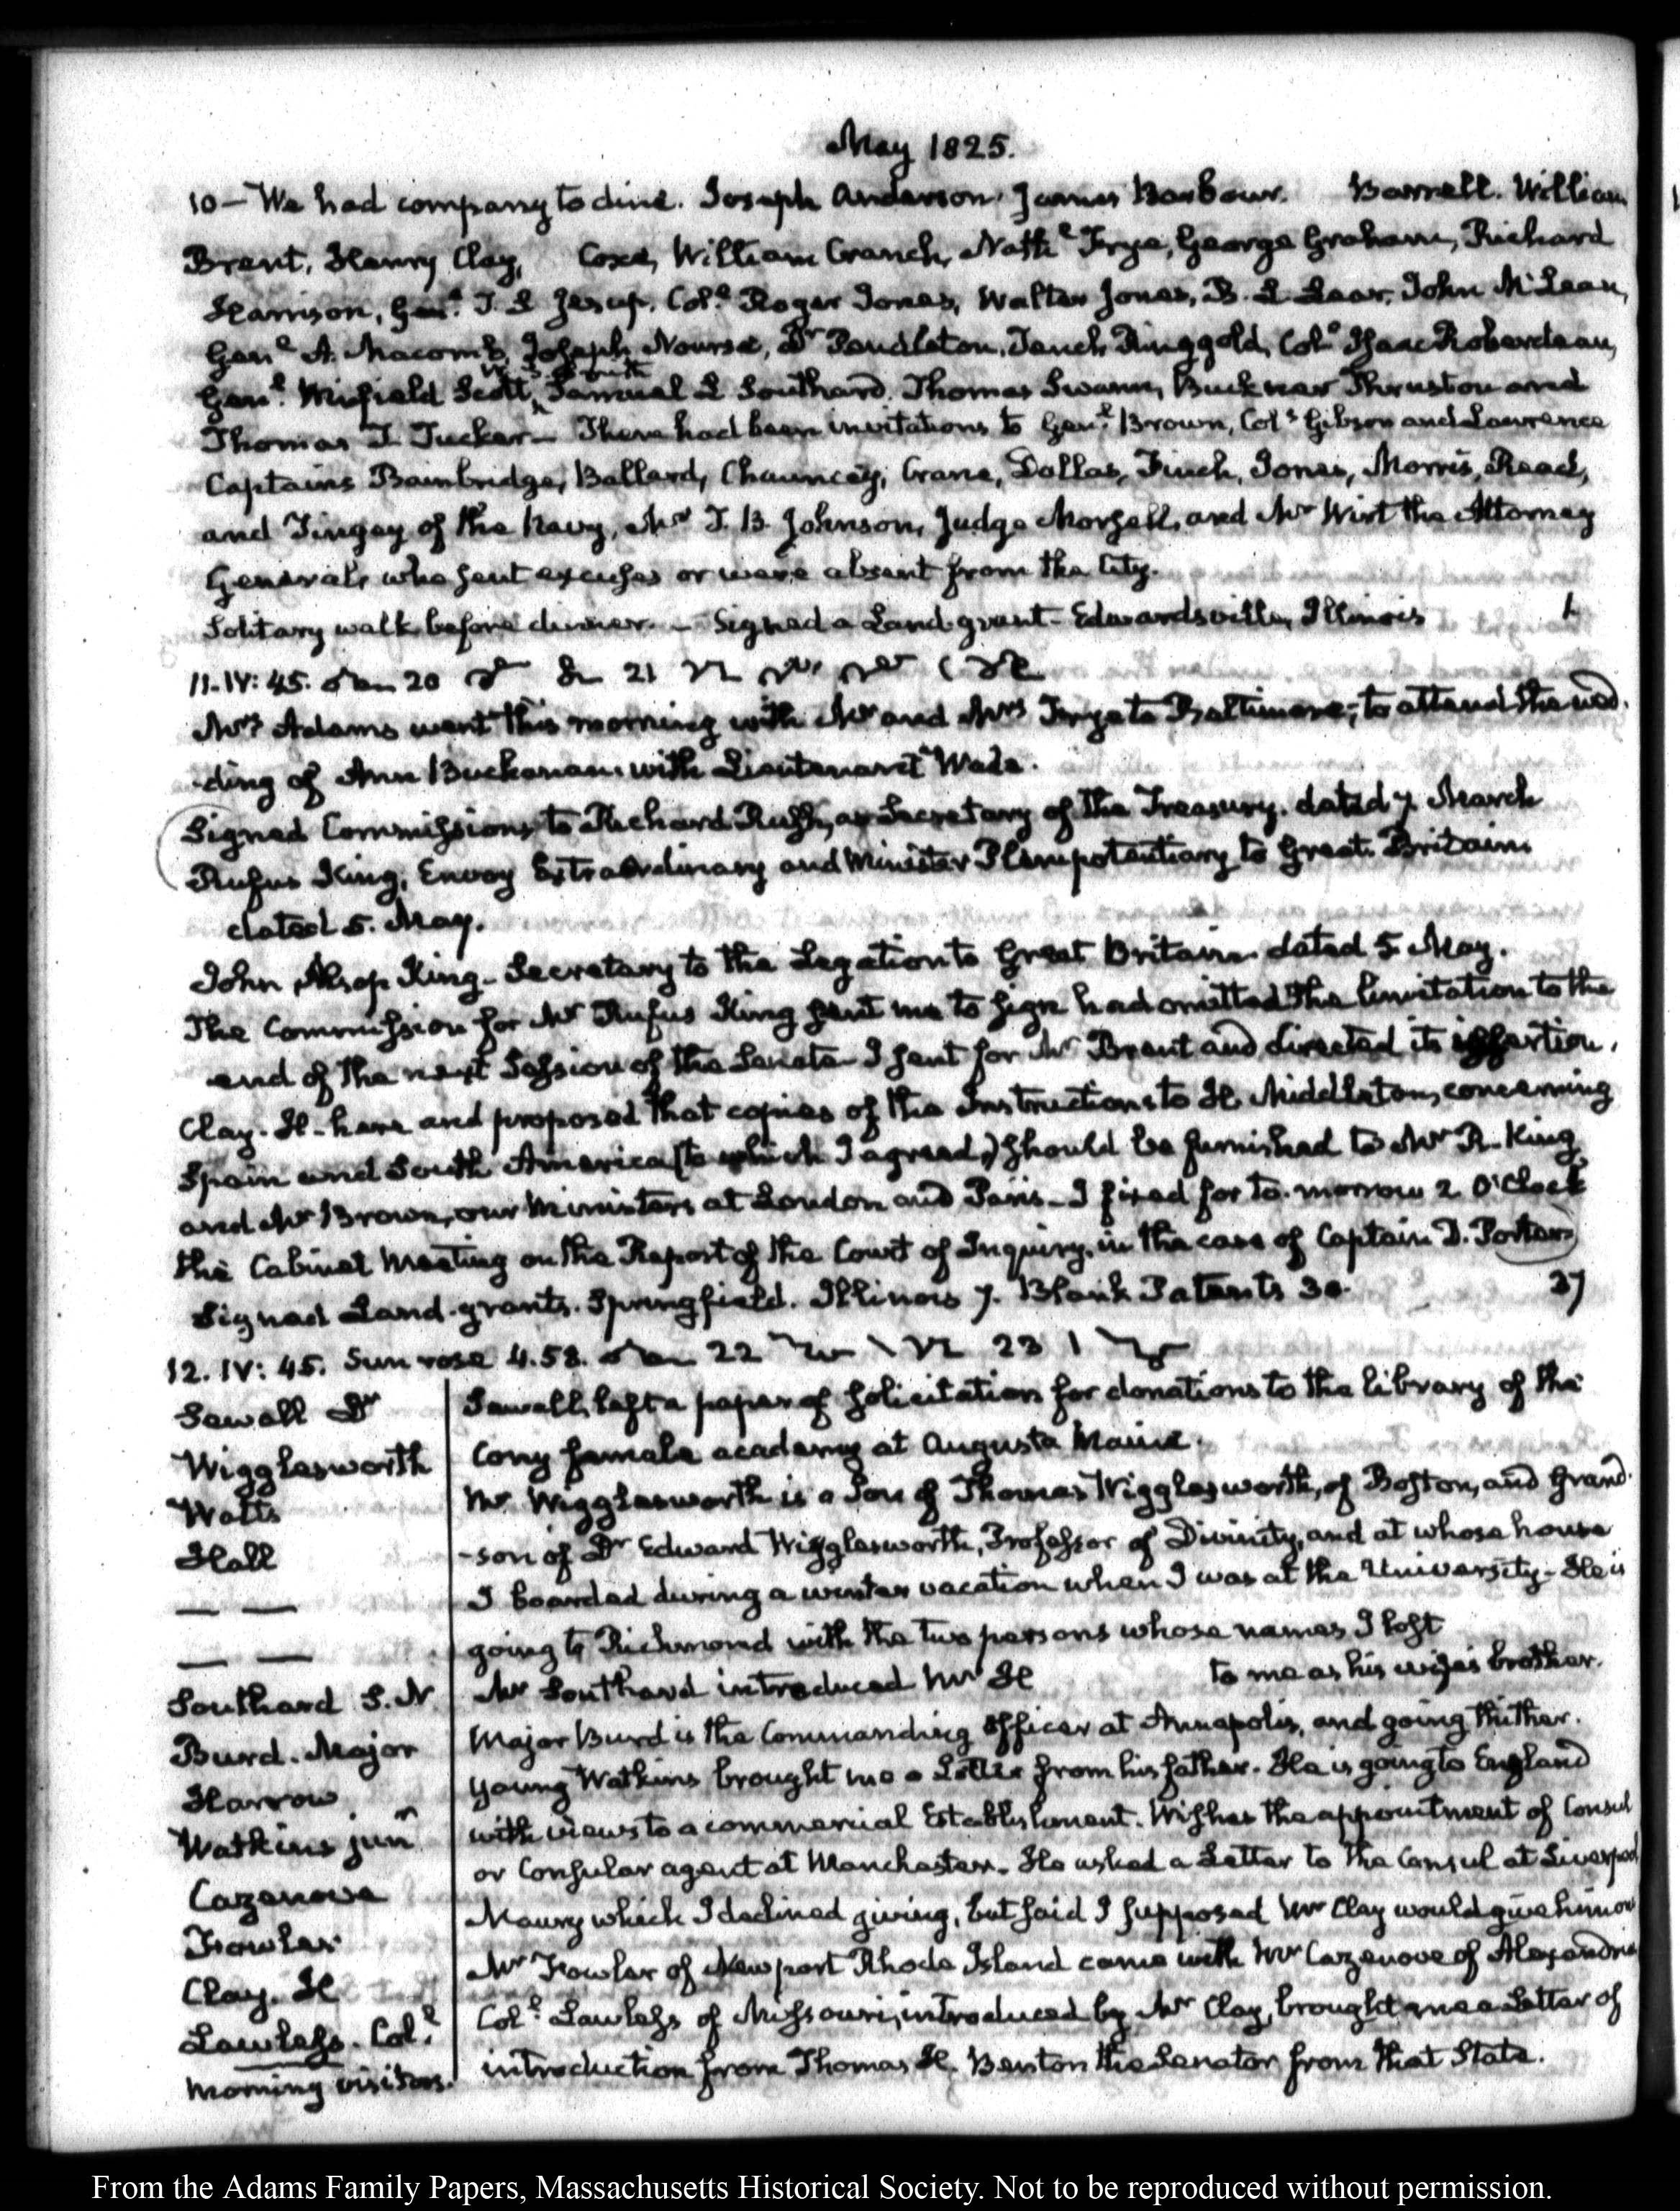 May 1825.
10 – We had company to dine. Joseph Anderson, James Barbour. Barrell. William
Brent, Henry Clay, Coxe, William Cranch, Nathl Frye, George Graham, Richard
Harrison, Genl T. S Jesup, Coll Roger Jones, Walter Jones, B. L Lear, John McLean,
Genl A. Macomb, Joseph Nourse, Dr Pendleton, Tench Ringgold, Coll Isaac Roberdeau,
W. S. Smith
Genl Winfield Scott, Samuel L Southard, Thomas Swann, Buckner Thruston and
Thomas T Tucker – There had been invitations to Genl Brown, Cols Gibson and Lawrence
Captains Bainbridge, Ballard, Chauncey, Crane, Dallas, Finch, Jones, Morris, Read,
and Tingey of the Navy, Mr J. B. Johnson, Judge Morsell, and Mr Wirt the Attorney
General, who sent excuses or were absent from the City.
Solitary walk before dinner. – Signed a Land-grant – Edwardsville, Illinois 1.
11. IV: 45. 20 21
Mrs Adams went this morning with Mr and Mrs Frye to Baltimore, to attend the wed-
-ding of Ann Buchanan with Lieutenant Wade.
Signed Commissions to Richard Rush, as Secretary of the Treasury. dated 7 March
Rufus King, Envoy Extraordinary and Minister Plenipotentiary to Great Britain
dated 5. May.
John Alsop King – Secretary to the Legation to Great Britain. dated 5 May.
The Commission for Mr Rufus King sent me to sign had omitted the limitation to the
end of the next Session of the Senate – I sent for Mr Brent and directed its insertion.
Clay. H – here and proposed that copies of the Instructions to H. Middleton, concerning
Spain and South America (to which I agreed,) should be furnished to Mr R. King
and Mr Brown, our Ministers at London and Paris – I fixed for to-morrow 2 O'Clock
the Cabinet Meeting on the Report of the Court of Inquiry, in the case of Captain D. Porter
Signed Land-grants. Springfield. Illinois 7. Blank Patents 30. 37
12. IV: 45. Sun rose 4.58. 22 23
Sewall Dr
Wigglesworth
Watts
Hall
— —
— —
Southard S. N
Burd. Major
Harrow
Watkins junr
Cazenove
Fowler
Clay. H
Lawless. Coll
Morning visitors.
Sewall, left a paper of solicitation for donations to the library of the
Cony female academy at Augusta Maine.
Mr Wigglesworth is a Son of Thomas Wigglesworth, of Boston, and Grand-
-son of Dr Edward Wigglesworth, Professor of Divinity, and at whose house
I boarded during a winter vacation when I was at the University – He is
going to Richmond with the two persons whose names I lost
Mr Southard introduced Mr H to me as his wife's brother.
Major Burd is the Commanding Officer at Annapolis, and going thither.
Young Watkins brought me a Letter from his father. He is going to England
with views to a commercial Establishment. Wishes the appointment of Consul
or Consular agent at Manchester. He asked a Letter to the Consul at Liverpool
Maury which I declined giving, but said I supposed Mr Clay would give him one
Mr Fowler of Newport Rhode Island came with Mr Cazenove of Alexandria
Coll Lawless of Missouri, introduced by Mr Clay, brought me a Letter of
introduction from Thomas H. Benton the Senator from that State.
From the Adams Family Papers, Massachusetts Historical Society. Not to be reproduced without permission.